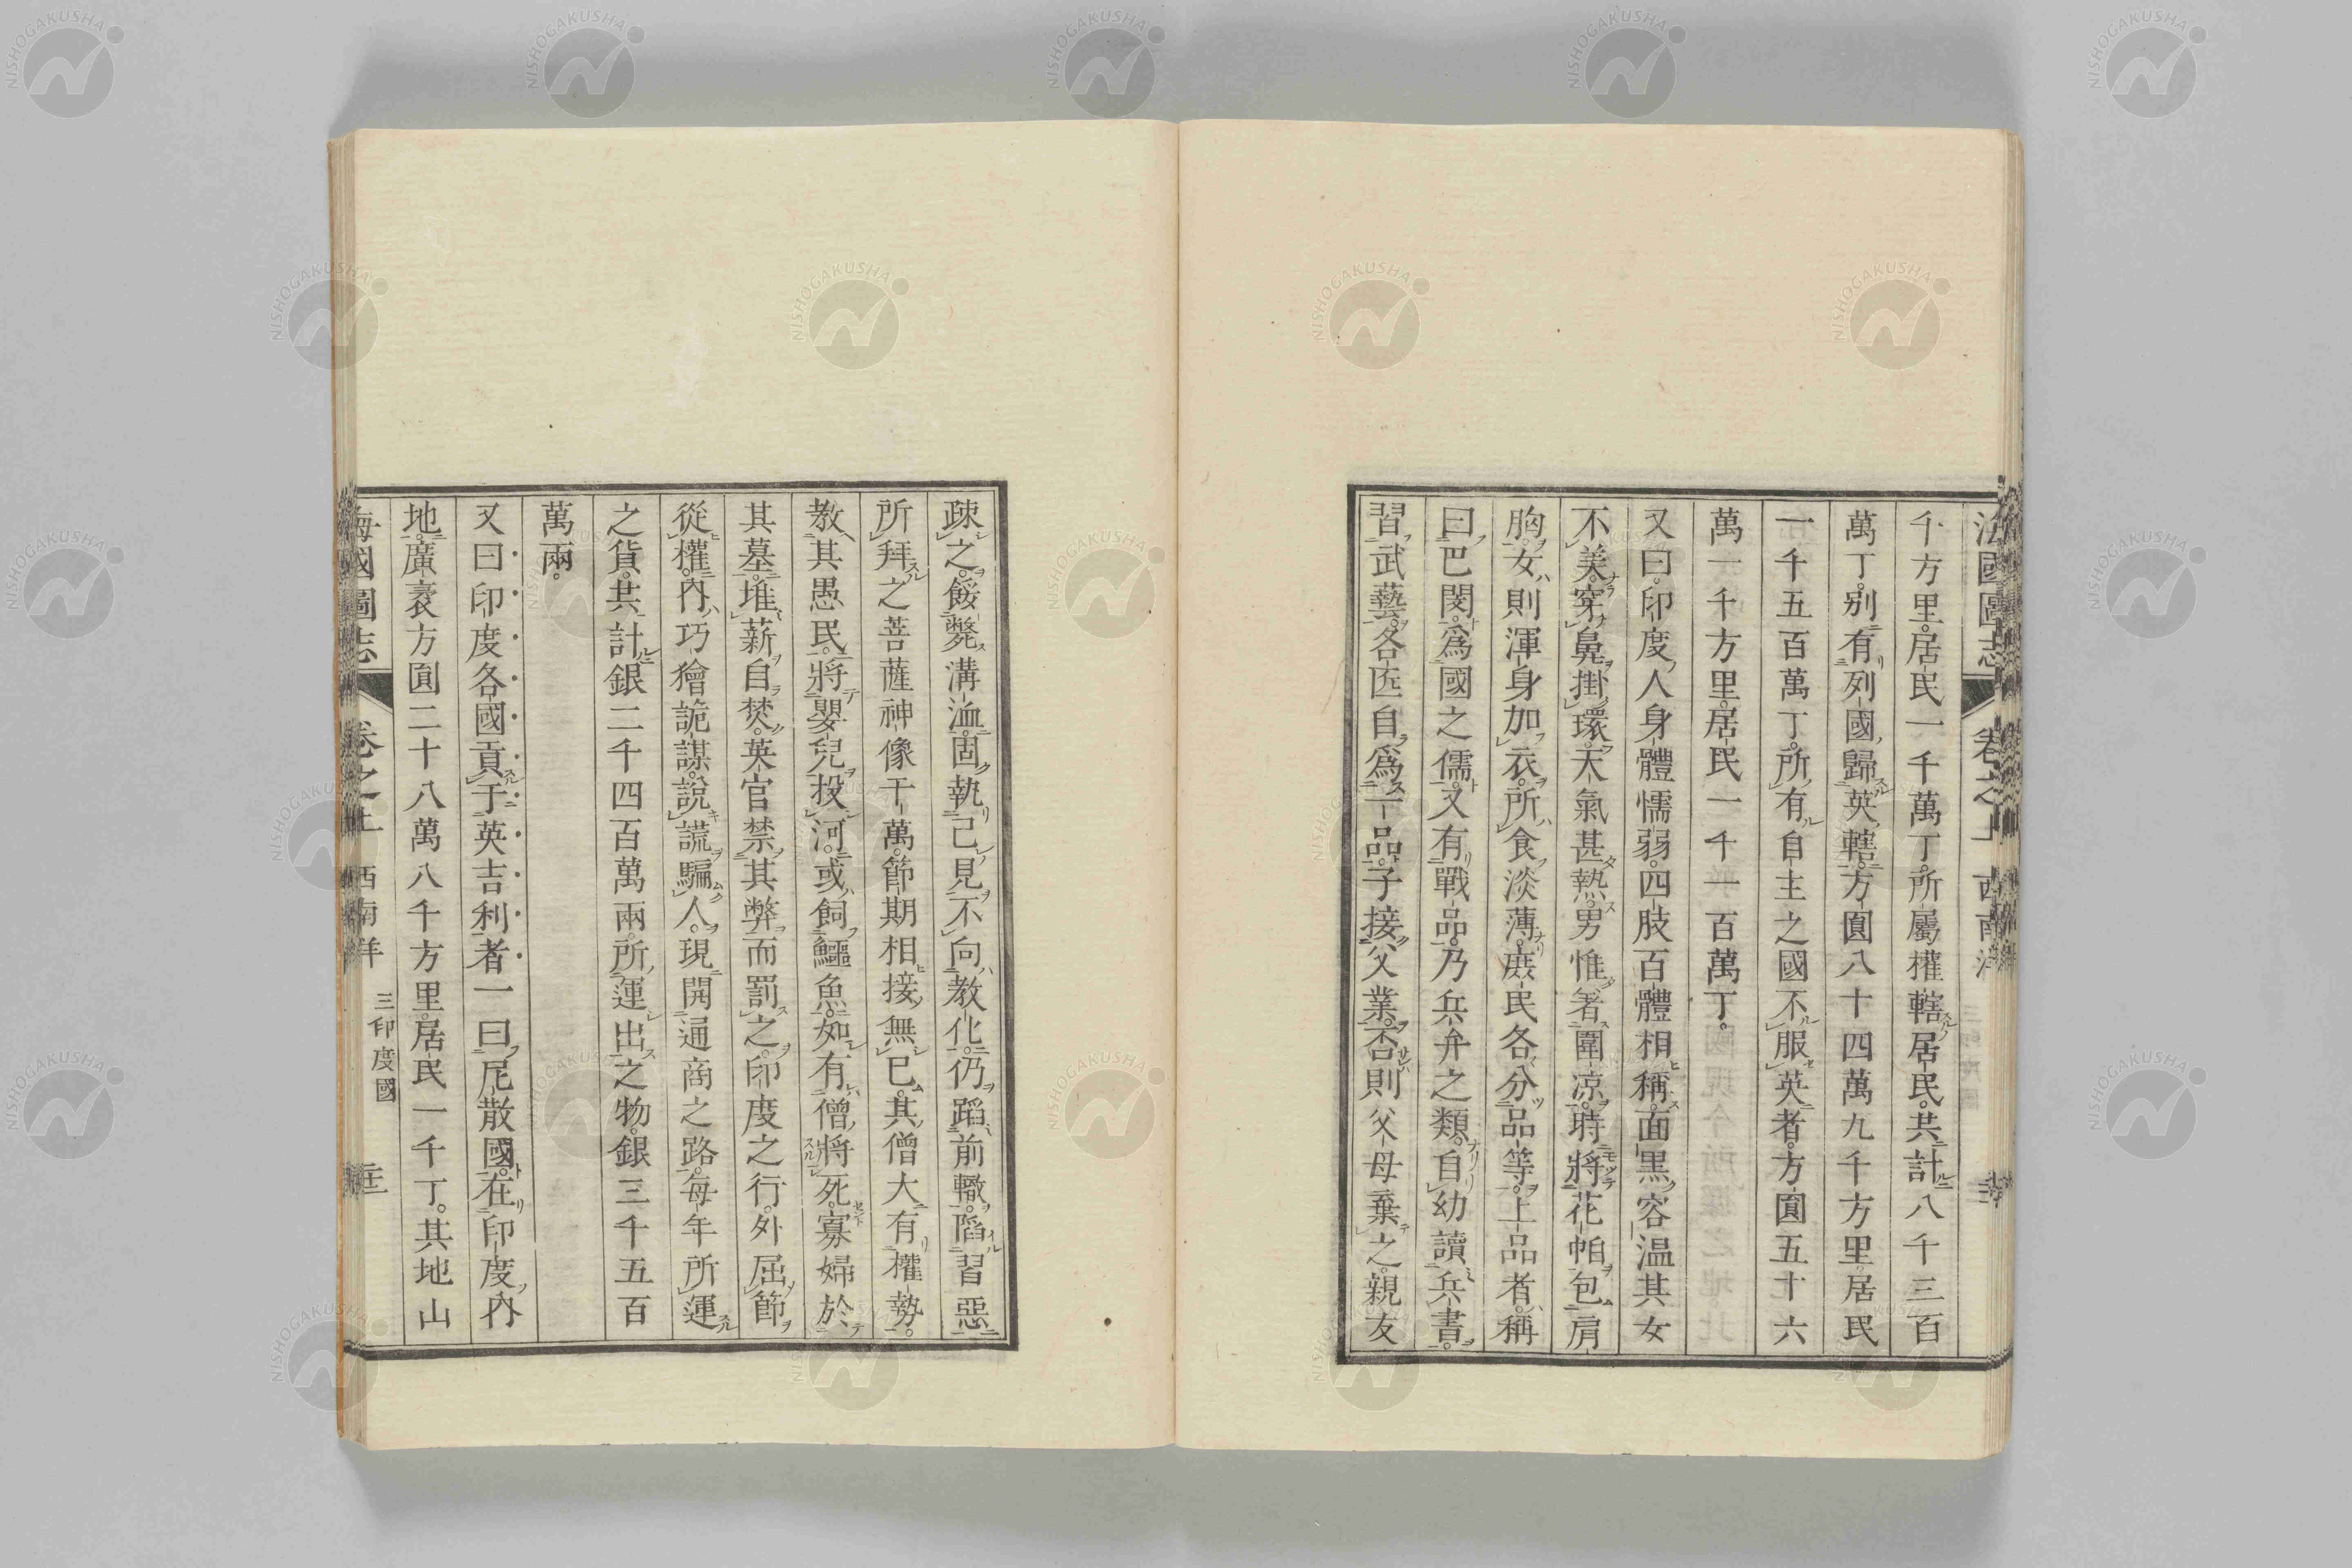 千方里。居民一千萬丁。所屬權轄居民。共計八千三百
萬丁。別有列國歸英轄。方圓八十四萬九千方里居民
一千五百萬丁。所有自主之國不服英者。方圓五十六
萬一千方里。居民一千一百萬丁。
又曰。印度人身體懦弱。四肢百體相稱。面黑容温其女
不美。穿鼻掛環。天氣甚熱。男惟著圍凉。時將花帕包肩
胸。女則渾身加衣。所食淡薄。庶民各分品等。上品者。稱
曰巴閔。為國之儒。又有戰品。乃兵弁之類。自幼讀兵書。
習武藝。各匠自為一品。子接父業。否則父母棄之。親友
疎之。餒斃溝洫。固執己見。不向教化。仍蹈前轍。陷習惡
所拜之菩薩神像千萬。節期相接無已。其僧大有權勢。
教其愚民。將嬰兒投河。或飼鱷魚。如有僧將死。寡婦於
其墓堆薪自焚。英官禁其弊而罰之。印度之行。外屈節
從權。內巧獪詭謀。說謊騙人。現開通商之路。每年所運
之貨。共計銀二千四百萬兩。所運出之物。銀三千五百
萬兩。
又曰印度各國貢于英吉利者一曰尼散國。在印度內
地。廣袤方圓二十八萬八千方里。居民一千丁。其地山
海國圖志 卷之上 西南洋 三印度國